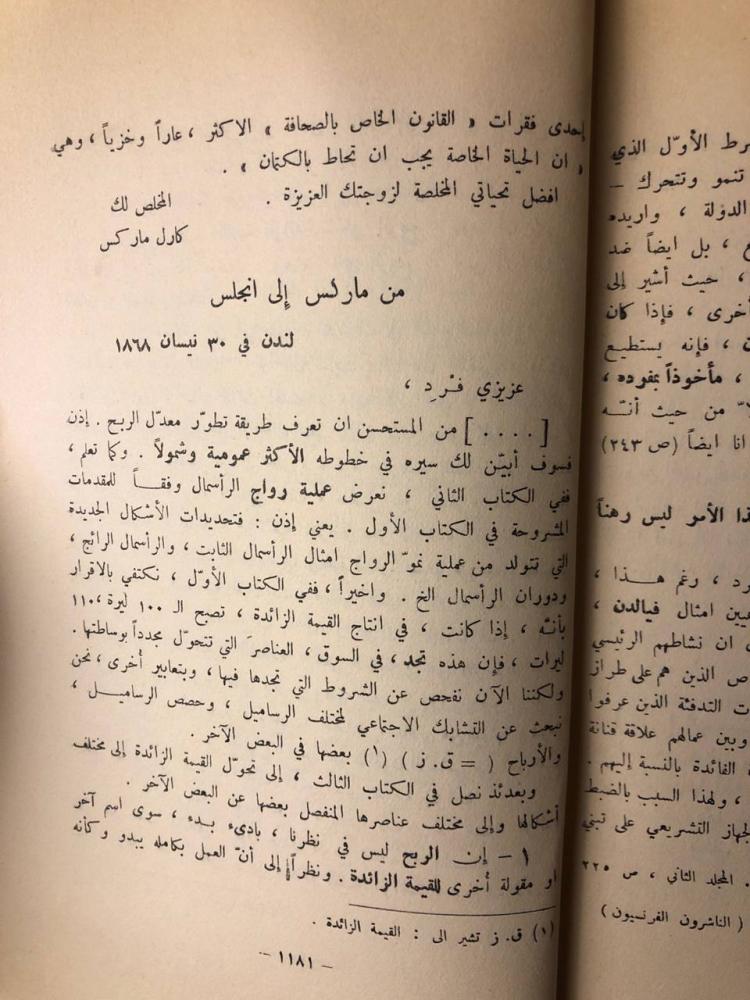 إحدى فقرات « القانون الخاص بالصحافة » الاكثر ، عاراً وخزياً ، وهي
« ان الحياة الخاصة يجب ان تحاط بالكتمان » .
افضل تحياتي المخلصة لزوجتك العزيزة .
المخلص لك
كارل ماركس
من ماركس إلى انجلس
لندن في ٣٠ نيسان ١٨٦٨
عزيزي فرد ،
[ . . . . ] من المستحسن ان تعرف طريقة تطوّر معدّل الربح . إذن
فسوف أبيّن لك سيره في خطوطه الأكثر عمومية وشمولاً . وكما تعلم ،
ففي الكتاب الثاني ، نعرض عملية رواج الرأسمال وفقاً للمقدمات
المشروحة في الكتاب الأول . يعني إذن : فتحديدات الأشكال الجديدة
التي تتولد من عملية نموّ الرواج امثال الرأسمال الثابت ، والرأسمال الرائج ،
ودوران الرأسمال الخ . واخيراً ، ففي الكتاب الأوّل ، نكتفي بالاقرار
بأنه ، إذا كانت ، في انتاج القيمة الزائدة ، تصبح الـ ١٠٠ ليرة ، ١١٠
ليرات ، فإن هذه تجد ، في السوق ، العناصر التي تتحوّل مجدداً بوساطتها .
ولكننا الآن نفحص عن الشروط التي تجدها فيها ، وبتعابير أخرى ، نحن
نبحث عن التشابك الاجتماعي لمختلف الرساميل ، وحصص الرساميل ،
والأرباح ( = ق . ز ) (١) بعضها في البعض الآخر .
وبعدئذ نصل في الكتاب الثالث ، إلى تحوّل القيمة الزائدة إلى مختلف
أشكالها وإلى مختلف عناصرها المنفصل بعضها عن البعض الآخر .
١ – إن الربح ليس في نظرنا ، بادىء بدء ، سوى اسم آخر
او مقولة أخرى للقيمة الزائدة . ونظراً إلى أنّ العمل بكامله يبدو وكأنه
(١) ق . ز تشير الى : القيمة الزائدة .
– ١١٨١ –
رط الأوّل الذي
تنمو وتتحرك –
الدولة ، واريده
، بل ايضاً ضد
، حيث أشير إلى
أخرى ، فإذا كان
، فإنه يستطيع
، مأخوذاً بمفرده ،
من حيث أنه
انا ايضاً (ص ٢٤٣)
ذا الأمر ليس رهناً
رد ، رغم هذا ،
عيين امثال فيالدن ،
ان نشاطهم الرئيسي
ص الذين هم على طراز
ت التدفئة الذين عرفوا
وبين عمالهم علاقة قنانة
الفائدة بالنسبة إليهم .
، ولهذا السبب بالضبط
لجهاز التشريعي على تبني
. المجلد الثاني ، ص ٢٢٥
( الناشرون الفرنسيون )